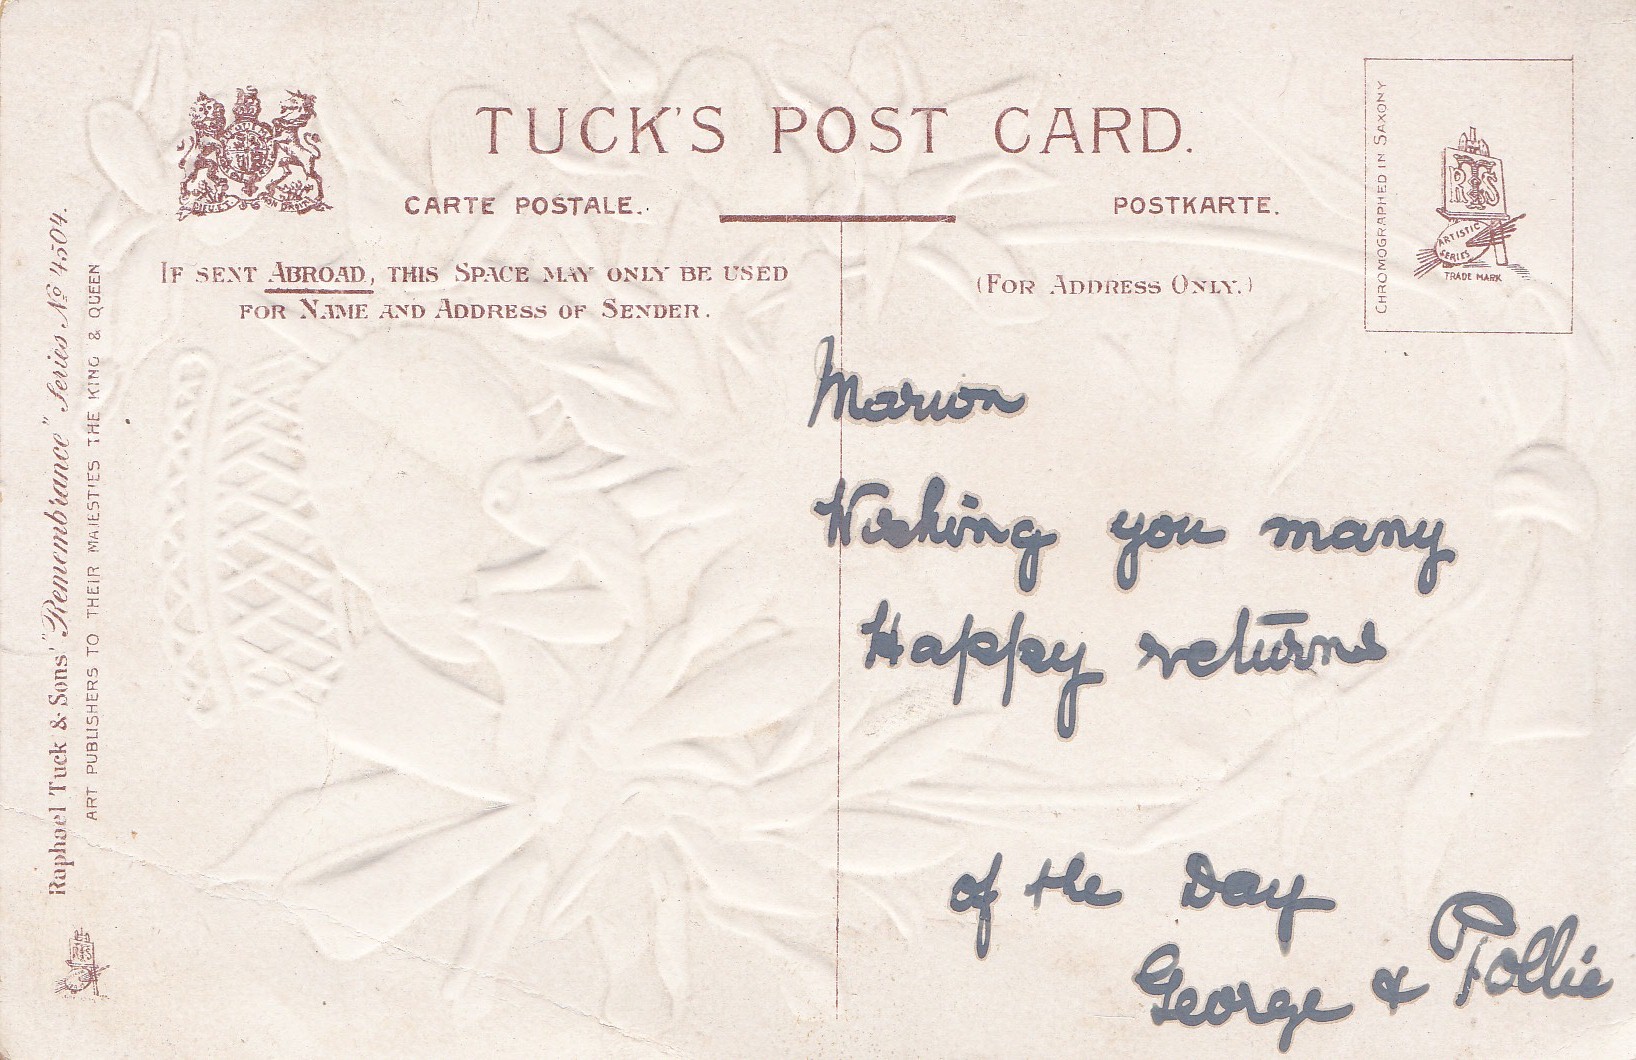 TUCK'S POST CARD.
CARTE POSTALE.
POSTKARTE.
IF SENT ABROAD, THIS SPACE MAY ONLY BE USED
FOR NAME AND ADDRESS OF SENDER.
(FOR ADDRESS ONLY.)
CHROMOGRAPHED IN SAXONY
RTS
ARTISTIC
SERIES
TRADE MARK
Raphael Tuck & Sons' "Remembrance" Series No 4504.
ART PUBLISHERS TO THEIR MAJESTIES THE KING & QUEEN
Marion
Wishing you many
Happy returns
of the Day
George & Pollie